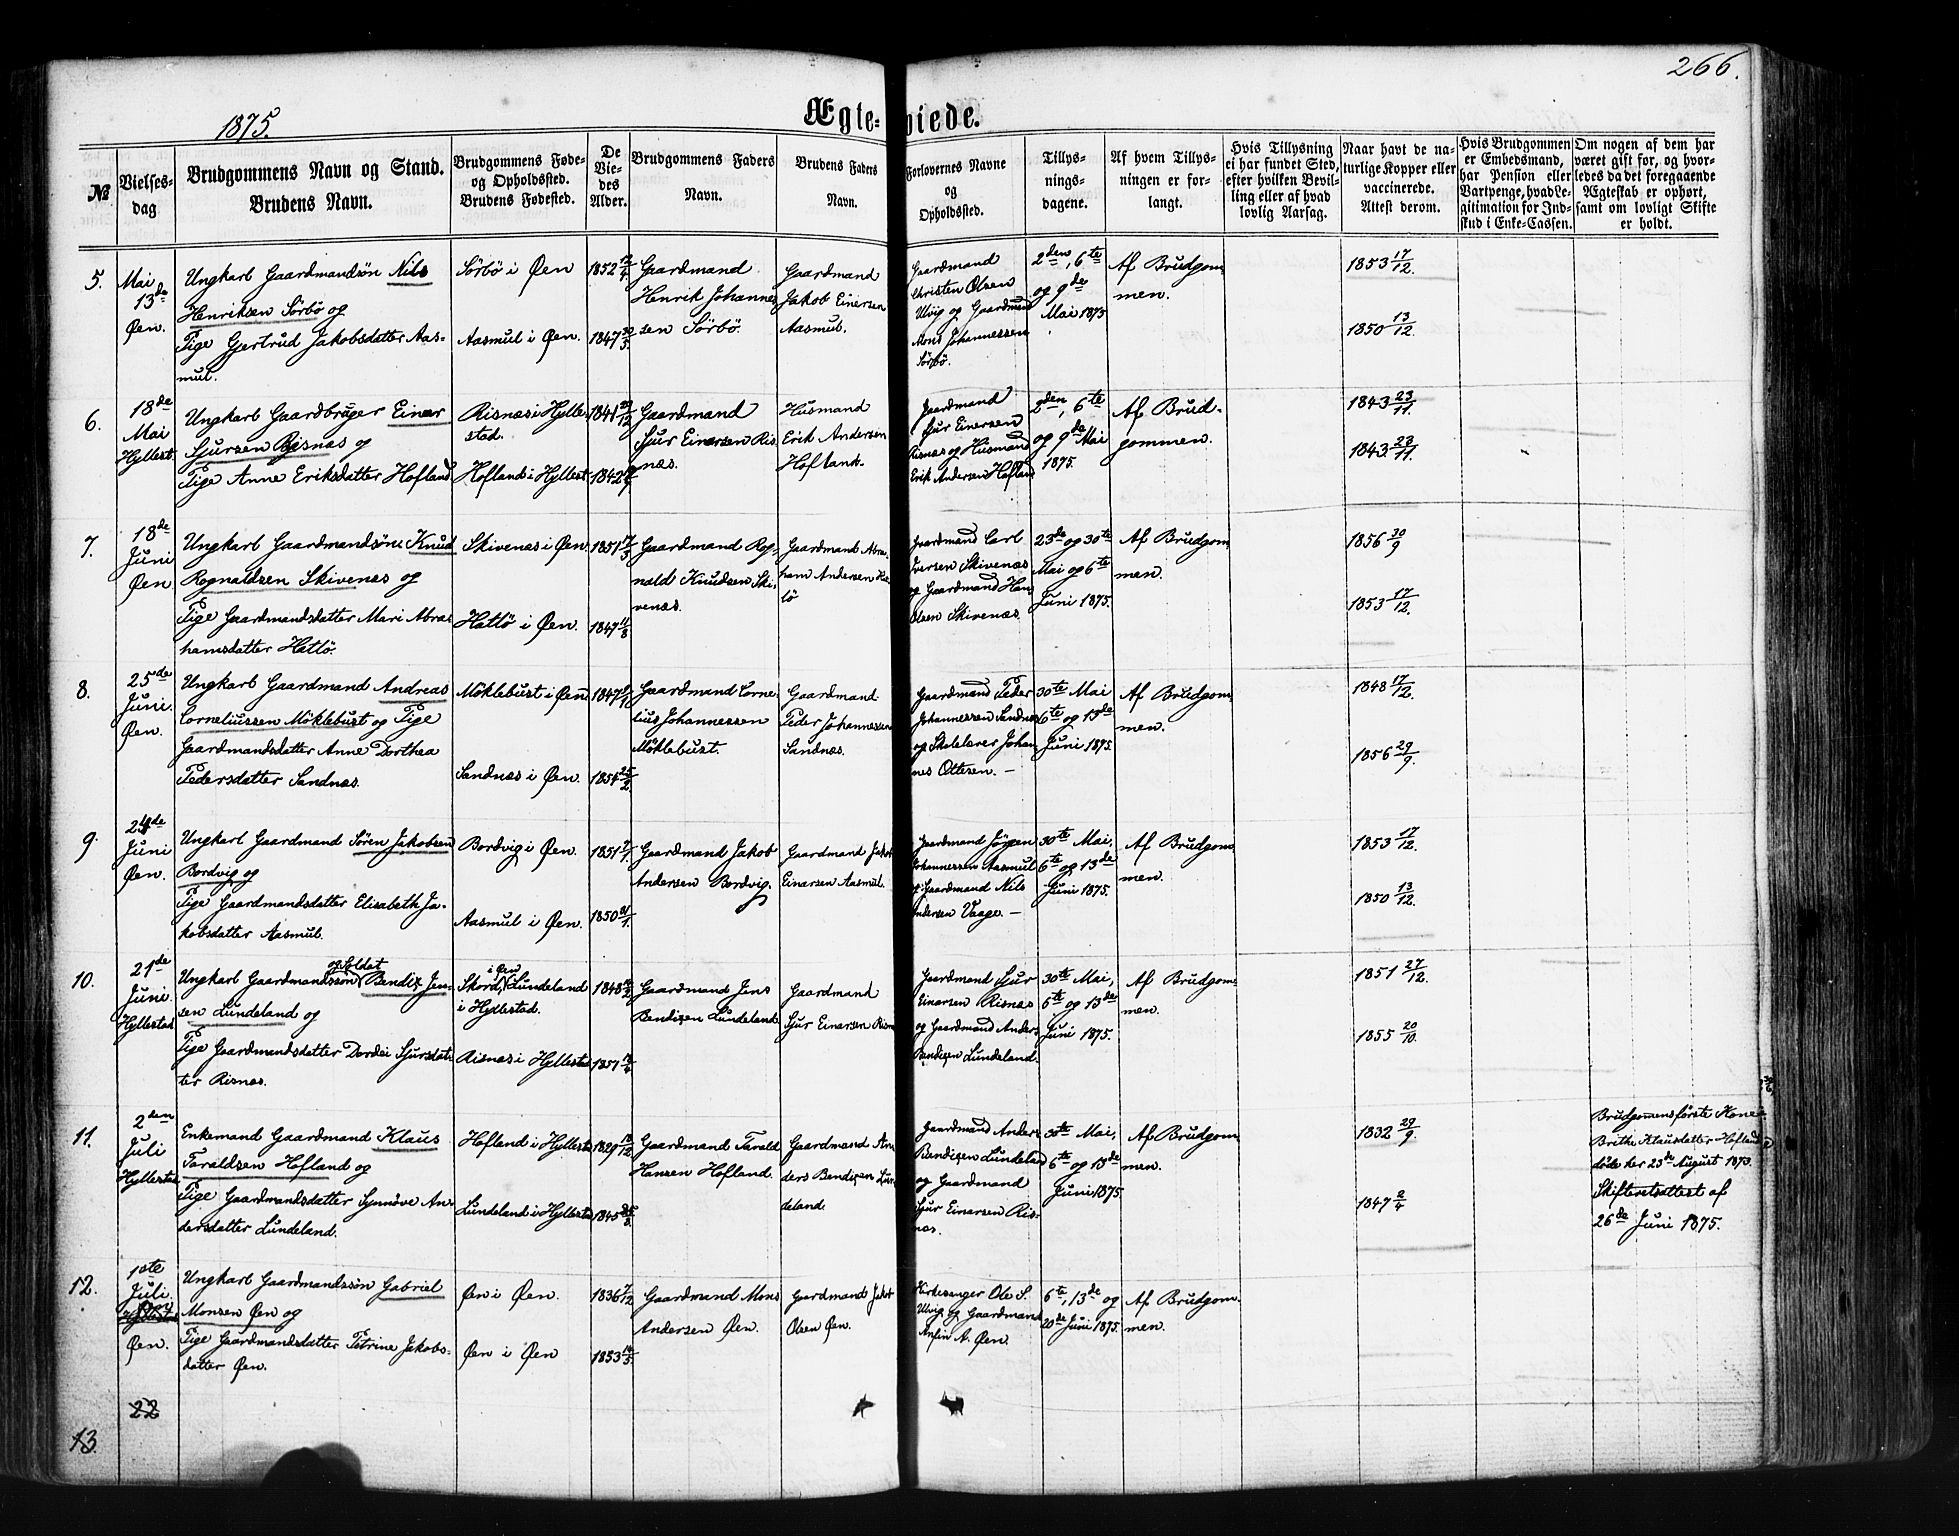 266.
1875.
Ægte-
viede.
№
Vielses-
dag
Brudgommens Navn og Stand.
Brudens Navn.
Brudgommens Føde-
og Opholdssted.
Brudens Fødested.
De
Vie-
des
Alder.
Brudgommens Faders
Navn.
Brudens Faders
Navn.
Forlovernes Navne
og
Opholdssted.
Tillys-
nings-
dagene.
Af hvem Tillys-
ningen er for-
langt.
Hvis Tillysning
ei har fundet Sted,
efter hvilken Bevil-
ling eller af hvad
lovlig Aarsag.
Naar havt de na-
turlige Kopper eller
vaccinerede.
Attest derom.
Hvis Brudgommen
er Embedsmand,
har Pension eller
Vartpenge, hvad Le-
gitimation for Ind-
skud i Enke-Cassen.
Om nogen af dem har
været gift før, og hvor-
ledes da det foregaaende
Ægteskab er ophørt,
samt om lovligt Skifte
er holdt.
5.
Mai
13de
Øen.
Ungkarl Gaardmandsøn Nils
Henriksen Sörbö og
Pige Gjertrud Jakobsdatter Aas-
mul.
Sörbö i Øen
Aasmul i Øen.
1852
1847
Gaardmand
Henrik Johannes-
sen Sörbö.
Gaardmand
Jakob Einersen
Aasmul.
Gaardmand
Christen Olsen
Ulvig og Gaardmand
Mons Johannessen
Sörbö.
2den, 6te
og 9de
Mai 1875
Af Brudgom-
men.
1853 17/12.
1850 13/12.
6.
18de
Mai
Hyllest.
Ungkarl Gaardbruger Einar
Sjursen Risnæs og
Pige Anne Eriksdatter Hofland
Risnæs i Hylle-
stad.
Hofland i Hyllest.
1841
1842
Gaardmand
Sjur Einersen Ris-
næs.
Husmand
Erik Andersen
Hofland.
Gaardmand
Sjur Einersen
Risnæs og Husmand
Erik Andersen Hofland
2den, 6te
og 9de Mai
1875.
Af Brud-
gommen.
1843 23/11.
1843 23/11.
7.
18de
Juni
Øen.
Ungkarl Gaardmandsøn Knud
Rognaldsen Skivenæs og
Pige Gaardmandsdatter Mari Abra-
hamsdatter Hatlö.
Skivenæs i Øen
Hatlö i Øen.
1851
1847 11/8
Gaardmand Rog-
nald Knudsen Ski-
venæs.
Gaardmand Abra-
ham Andersen Hat-
lö
Gaardmand Carl
Iversen Skivenæs
og Gaardmand Hans
Olsen Skivenæs.
23de og 30te
Mai og 6te
Juni 1875.
Af Brudgom-
men.
1856 30/9
1853 17/12.
8.
25de
Juni.
Øen.
Ungkarl Gaardmand Andreas
Corneliussen Möklebust og Pige
Gaardmandsdatter Anne Dorthea
Pedersdatter Sandnæs.
Möklebust i Øen
Sandnæs i Øen.
1847
1854 25/2
Gaardmand Corne-
lius Johannessen
Möklebust.
Gaardmand
Peder Johannessen
Sandnæs.
Gaardmand Peder
Johannessen Sandnæs
og Skolelærer Johan-
nes Ottesen. —
30te Mai
6te og 13de
Juni 1875.
Af Brudgom-
men.
1848 17/12.
1856 29/9.
9.
24de
Juni
Øen.
Ungkarl Gaardmand Sören Jakobsen
Bordvig og
Pige Gaardmandsdatter Elisabeth Ja-
kobsdatter Aasmul.
Bordvig i Øen.
Aasmul i Øen.
1851
1850
Gaardmand Jakob
Andersen Bordvig.
Gaardmand Jakob
Einarsen Aasmul.
Gaardmand Jörgen
Johannessen Aasmul
og Gaardmand Nils
Andersen Vaage. —
30te Mai,
6te og 13de
Juni 1875.
Af Brudgom-
men.
1853 17/12.
1850 13/12.
10.
21de
Juni.
Hyllestad.
og Soldat
Ungkarl Gaardmandssön Bendix Jen-
sen Lundeland og
Pige Gaardmandsdatter Dordei Sjursdat-
ter Risnæs.
i Øen
Skord, Lundeland
i Hyllestad.
Risnæs i Hyllestad
1848
Gaardmand Jens
Bendixen Lundeland.
Gaardmand
Sjur Einarsen Risnæs
Gaardmand Sjur
Einarsen Risnæs
og Gaardmand Anders
Bendixen Lundeland.
30te Mai,
6te og 13de
Juni 1875.
Af Brudgom-
men.
1851 27/12.
1855 20/10.
11.
2den
Juli
Hyllestad.
Enkemand Gaardmand Klaus
Taraldsen Hofland og
Pige Gaardmandsdatter Synnöve An-
dersdatter Lundeland.
Hofland i Hyllest.
Lundeland i Hyllestad
1829
1845
Gaardmand Tarald
Hansen Hofland.
Gaardmand An-
ders Bendixen Lun-
deland.
Gaardmand Anders
Bendixen Lundeland
og Gaardmand
Sjur Einarsen Ris-
næs.
30te Mai,
6te og 13de
Juni 1875
Af Brudgom-
men.
1832 29/9.
1847 2/4
Brudgommens første Kone
Brithe Klausdatter Hofland
døde her 23de August 1873.
Skifteretsattest af
26de Juni 1875.
12.
1ste
Juli.
Øen.
Ungkarl Gaardmandssön Gabriel
Monsen Øen og
Pige Gaardmandsdatter Petrine Jakobs-
datter Øen.
Øen i Øen.
Øen i Øen
1836
1853
Gaardmand Mons
Andersen Øen.
Gaardmand Jakob
Olsen Øen.
Kirkesanger Ole S.
Ulvig og Gaardmand
Anfin A. Øen.
6te, 13de og
20de Juni 1875.
Af Brudgom-
men.
22
13.